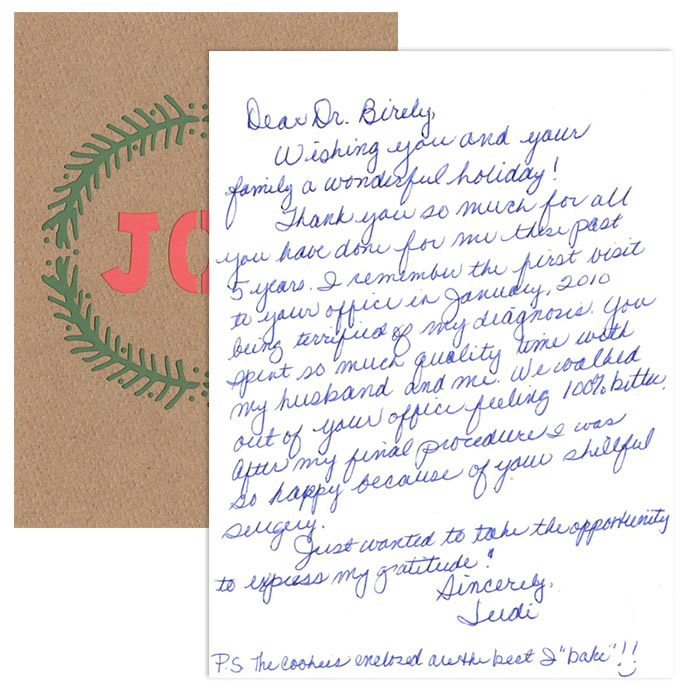 JO
Dear Dr. Birely,
Wishing you and your
family a wonderful holiday!
Thank you so much for all
you have done for me these past
5 years. I remember the first visit
to your office in January, 2010
being terrified of my diagnosis. You
spent so much quality time with
my husband and me. We walked
out of your office feeling 100% better.
After my final procedure I was
so happy because of your skillful
surgery.
Just wanted to take the opportunity
to express my gratitude!
Sincerely,
Judi
P.S The cookies enclosed are the best I "bake"!!